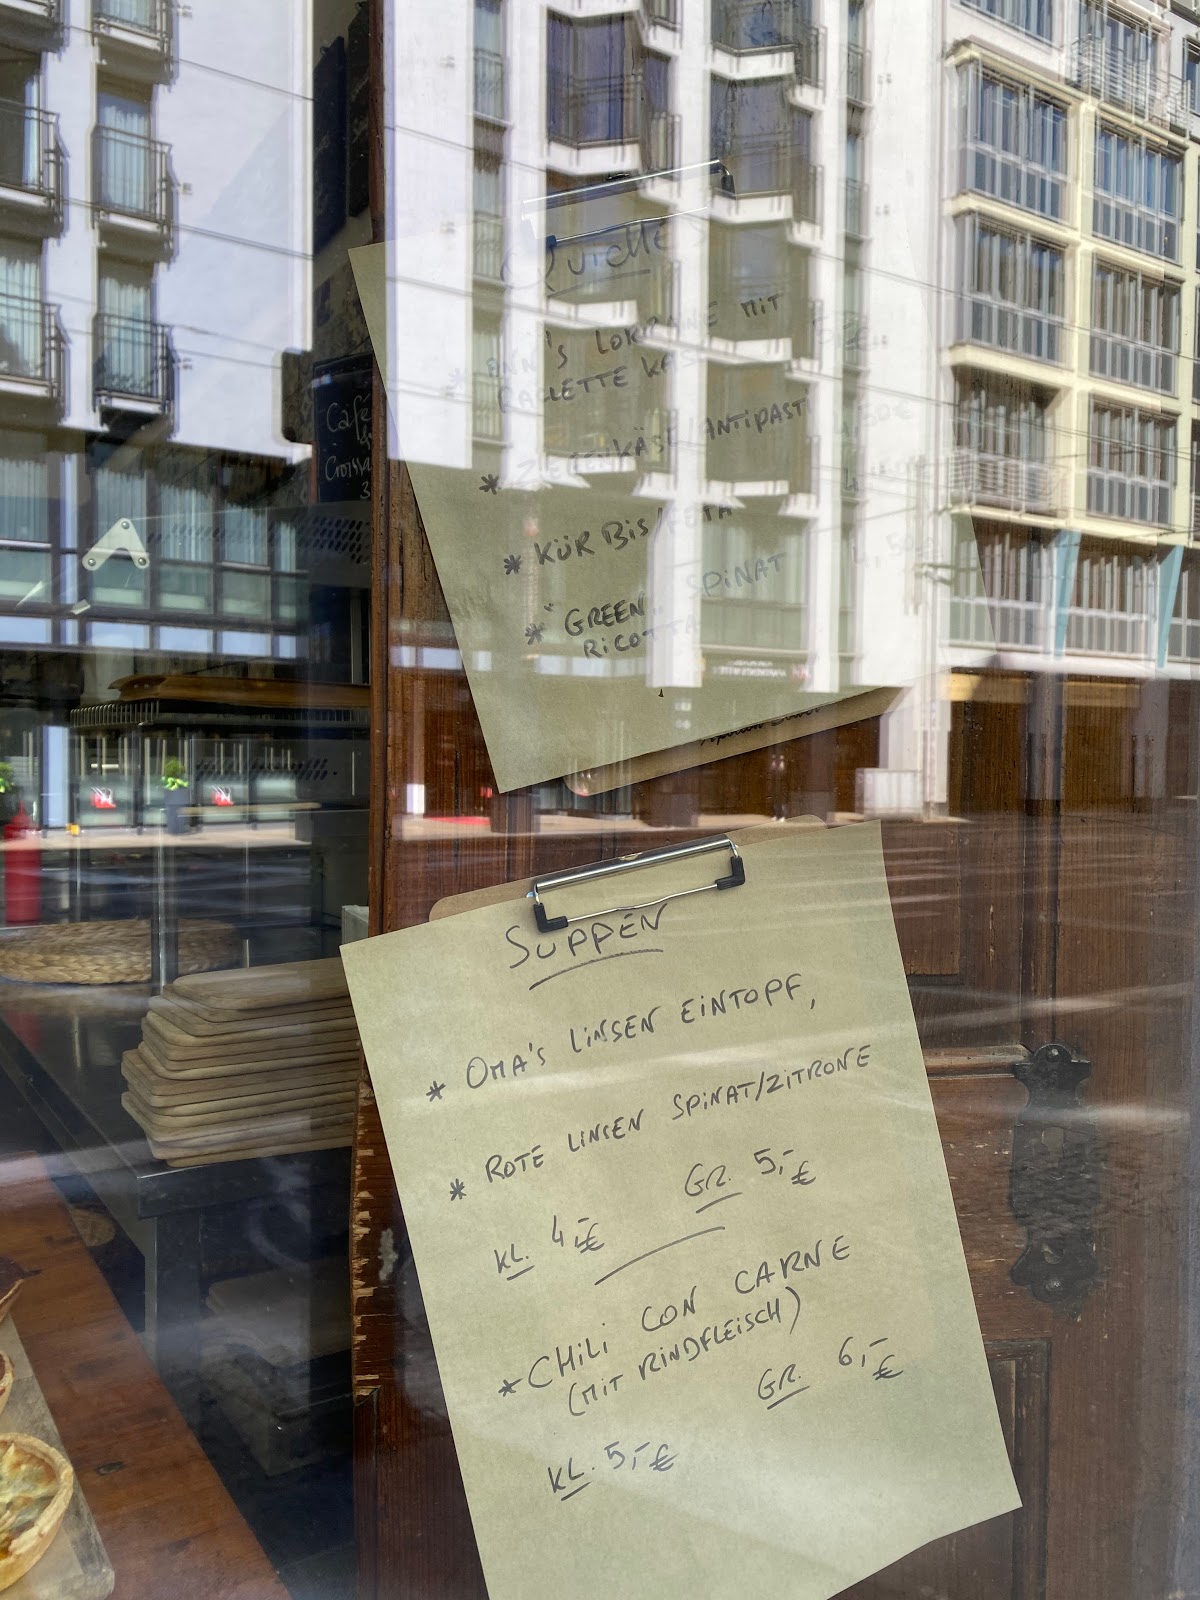 Quiche's
LORRAINE MIT
RACLETTE KÄS
* ZIEGENKÄSE/ANTIPASTI
4,50€
* KÜRBIS/FETA
* "GREEN" SPINAT
4,50
RICOTTA
Café
Croissa
3
SUPPEN
* OMA'S LINSEN EINTOPF,
* ROTE LINSEN SPINAT/ZITRONE
KL. 4,-€ GR. 5,-€
* CHILI CON CARNE
(MIT RINDFLEISCH)
GR. 6,-€
KL. 5,-€